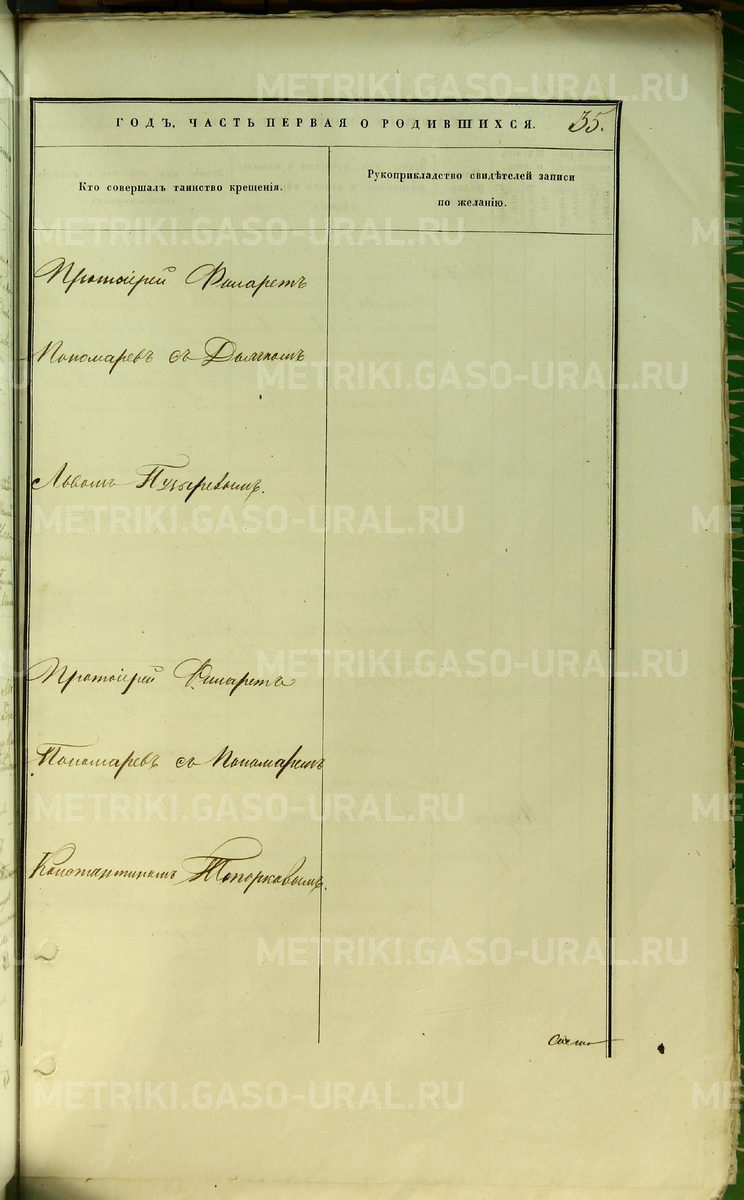 ГОДЪ, ЧАСТЬ ПЕРВАЯ О РОДИВШИХСЯ. 35.
Кто совершалъ таинство крещенія.
Рукоприкладство свидѣтелей записи
по желанію.
Протоіерей Филаретъ
Пономаревъ съ Дьячкомъ
Львомъ Пузыревымъ.
Протоіерей Филаретъ
Пономаревъ съ Пономаремъ
Константиномъ Топорковымъ.
METRIKI.GASO-URAL.RU